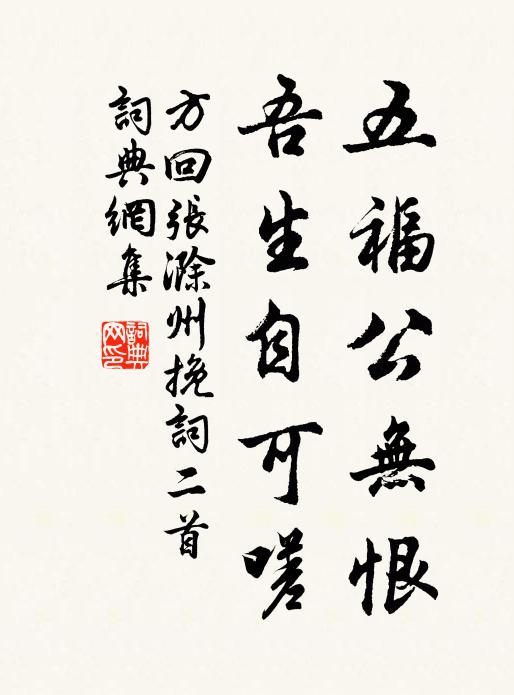 五福公無恨
吾生自可嗟
方回張滁州挽詞二首
詞典網集
詞典網印